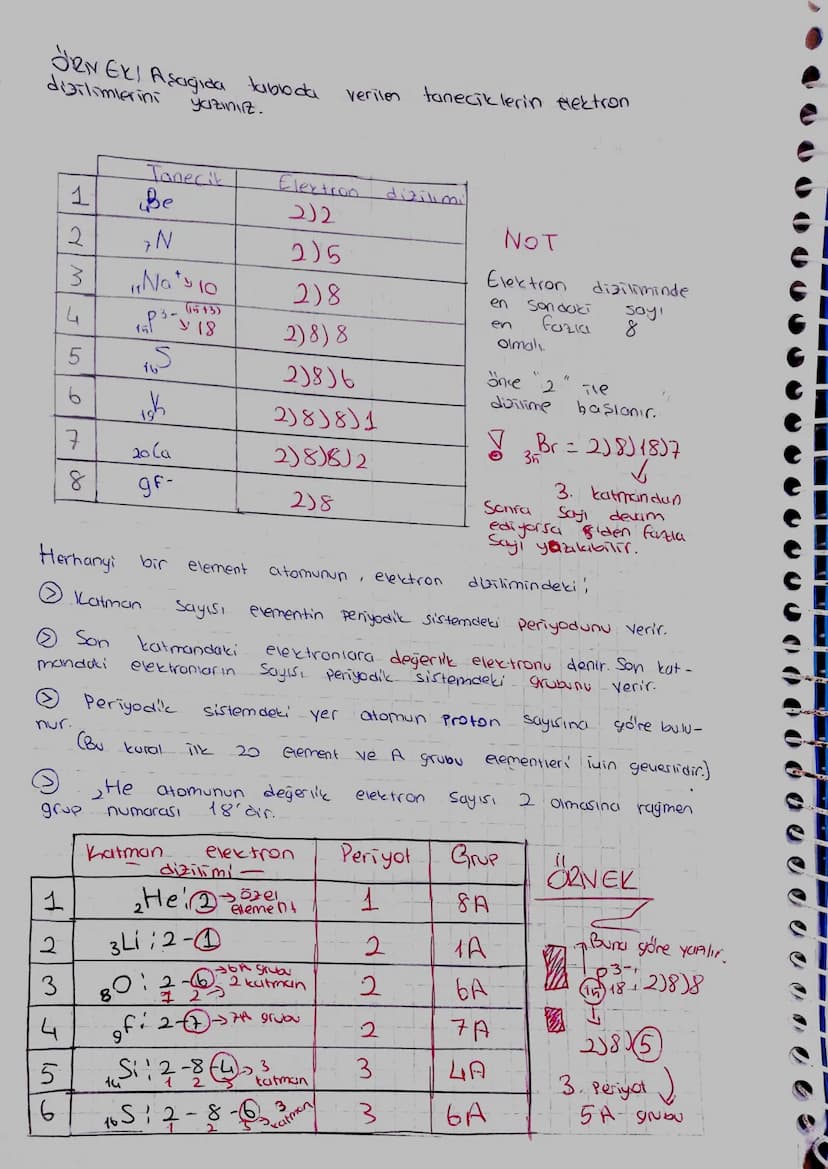 ÖRNEK! Aşağıda tabloda verilen taneciklerin elektron
dizilimlerini yazınız.
Tanecik Elektron dizilimi
1 ₄Be 2)2
2 ₇N 2)5
3 ₁₁Na⁺ ↘ 10 2)8
4 ₁₅P³⁻ (15+3) ↘ 18 2)8)8
5 ₁₆S 2)8)6
6 ₁₉K 2)8)8)1
7 ₂₀Ca 2)8)8)2
8 ₉F⁻ 2)8
NOT
Elektron diziliminde
en sondaki sayı
en fazla 8
olmalı.
önce "2" ile
dizilime başlanır.
! ₃₅Br = 2)8)18)7
3. katmandan
sonra sayı devam
ediyorsa 8'den fazla
sayı yazılabilir.
Herhangi bir element atomunun, elektron dizilimindeki;
> Katman sayısı elementin periyodik sistemdeki periyodunu verir.
> Son katmandaki elektronlara değerlik elektronu denir. Son kat-
mandaki elektronların sayısı periyodik sistemdeki grubunu verir.
> Periyodik sistemdeki yer atomun proton sayısına göre bulu-
nur.
(Bu kural ilk 20 element ve A grubu elementleri için geçerlidir.)
> ₂He atomunun değerlik elektron sayısı 2 olmasına rağmen
grup numarası 18'dir.
Katman elektron dizilimi — Periyot Grup
1 ₂He: 2 → özel element 1 8A
2 ₃Li : 2-1 2 1A
3 ₈O : 2-6 → 6A grubu 1 2 → 2 katman 2 6A
4 ₉F : 2-7 → 7A grubu 2 7A
5 ₁₄Si : 2-8-4 → 3 katman 1 2 3 3 4A
6 ₁₆S : 2-8-6 → 3 katman 1 2 3 3 6A
ÖRNEK
Buna göre yapılır.
₁₅P³⁻ 18 : 2)8)8
2)8)5
3. periyot
5A grubu